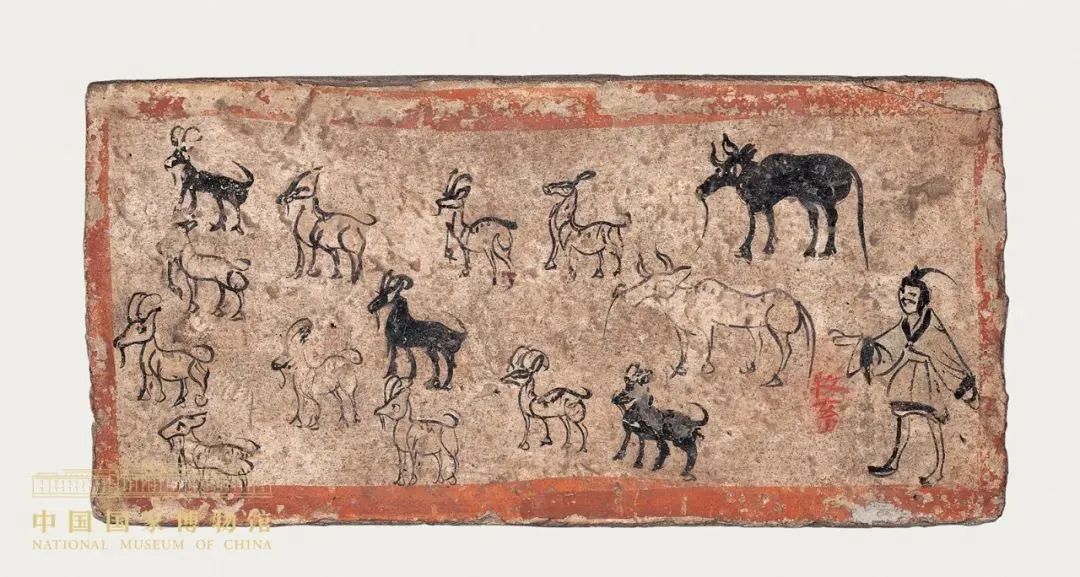 牧畜
中国国家博物馆
NATIONAL MUSEUM OF CHINA